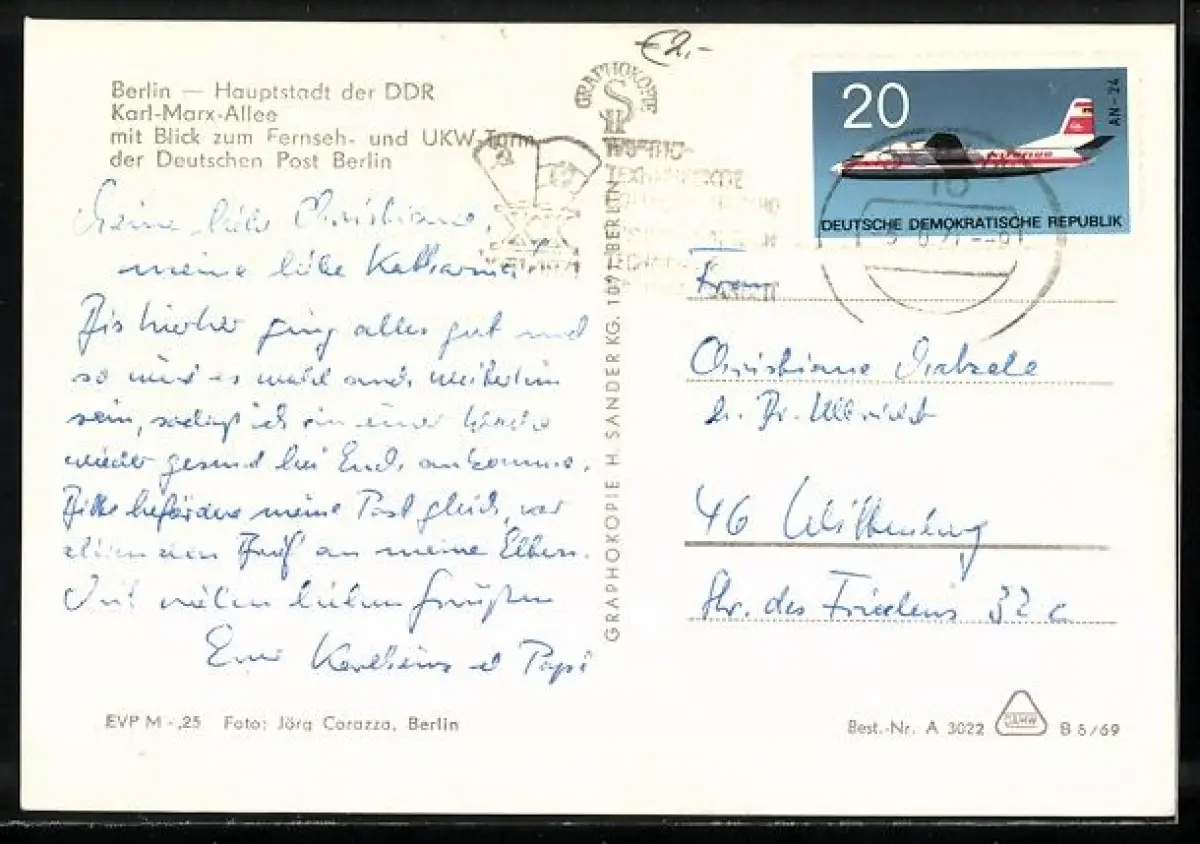 €2,-
Berlin — Hauptstadt der DDR
Karl-Marx-Allee
mit Blick zum Fernseh- und UKW-Turm
der Deutschen Post Berlin
Meine liebe Christiane,
meine liebe Katharina!
Bis hierher ging alles gut und
so wird es wohl auch weiterhin
sein, sodaß ich in einer Woche
wieder gesund bei Euch ankomme.
Bitte befördere meine Post gleich, vor
allem den Brief an meine Eltern.
Mit vielen lieben Grüßen
Euer Karlheinz u Papi
EVP M -,25 Foto: Jörg Corazza, Berlin
GRAPHOKOPIE
GRAPHOKOPIE H. SANDER KG. 1071 BERLIN
20
AN-24
DEUTSCHE DEMOKRATISCHE REPUBLIK
Frau
Christiane
b. Dr.
46 Wittenberg
Str. des Friedens 32 c
Best.-Nr. A 3022 B 6/69